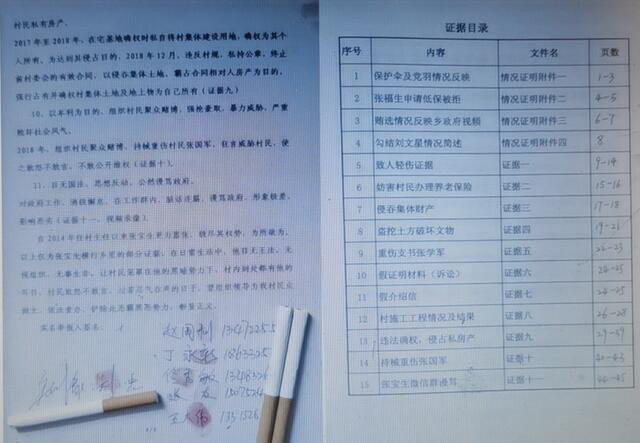 村民私有房产。
2017年至2018年，在宅基地确权时私自将村集体建设用地，确权为其个
人所有，为达到其侵占目的，2018年12月，违反村规，私持公章，终止
前村委会的有效合同，以侵吞集体土地、霸占合同相对人房产为目的，
强行占有并确权村集体土地及地上物为自己所有（证据九）
10、以牟利为目的，组织村民聚众赌博，强抢豪取，暴力威胁，严重
败坏社会风气。
2018年，组织村民聚众赌博、持械重伤村民张国军，狂言威胁村民，使
之敢怒不敢言，不敢公开维权（证据十）。
11、目无国法，思想反动，公然谩骂政府。
对政府工作，消极懈怠，在工作群内，脏话连篇，谩骂政府，形象极差，
影响恶劣（证据十一，视频录像）。
在2014年任村主任以来张宝生更为嚣张，极尽其权势，为所欲为，
以上仅为张宝生横行乡里的部分证据，在日常生活中，他目无王法，无
视组织，无事生非，让村民笼罩在他的黑暗势力下，村内到处都有他的
耳目，村民敢怒不敢言，过着忍气吞声的日子，望组织领导为我村民众
做主，依法查办，铲除此恶霸黑恶势力，彰显正义。
实名举报人签名：
证据目录
序号 内容 文件名 页数
1 保护伞及党羽情况反映 情况证明附件一 1-3
2 张福生申请低保被拒 情况证明附件二 4-5
3 贿选情况反映乡政府视频 情况证明附件三 6-7
4 勾结刘文星情况简述 情况证明附件四 8
5 致人轻伤证据 证据一 9-14
6 妨害村民办理养老保险 证据二 15-16
7 侵吞集体财产 证据三 17-18
8 盗挖土方破坏文物 证据四 19-21
9 重伤支书张学军 证据五
10 假证明材料（诉讼） 证据六 24-25
11 假介绍信 证据七 24-25
12 村施工工程情况及结果 证据八 26-28
13 违法确权，侵占私房产 证据九
14 持械重伤张国军 证据十
15 张宝生微信群谩骂 证据十一